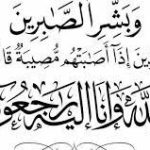 وَبَشِّرِ الصَّابِرِينَ
ينَ إِذَا أَصَابَتْهُم مُّصِيبَةٌ قَا
للهِ وَإِنَّا إِلَيْهِ رَاجِعُو